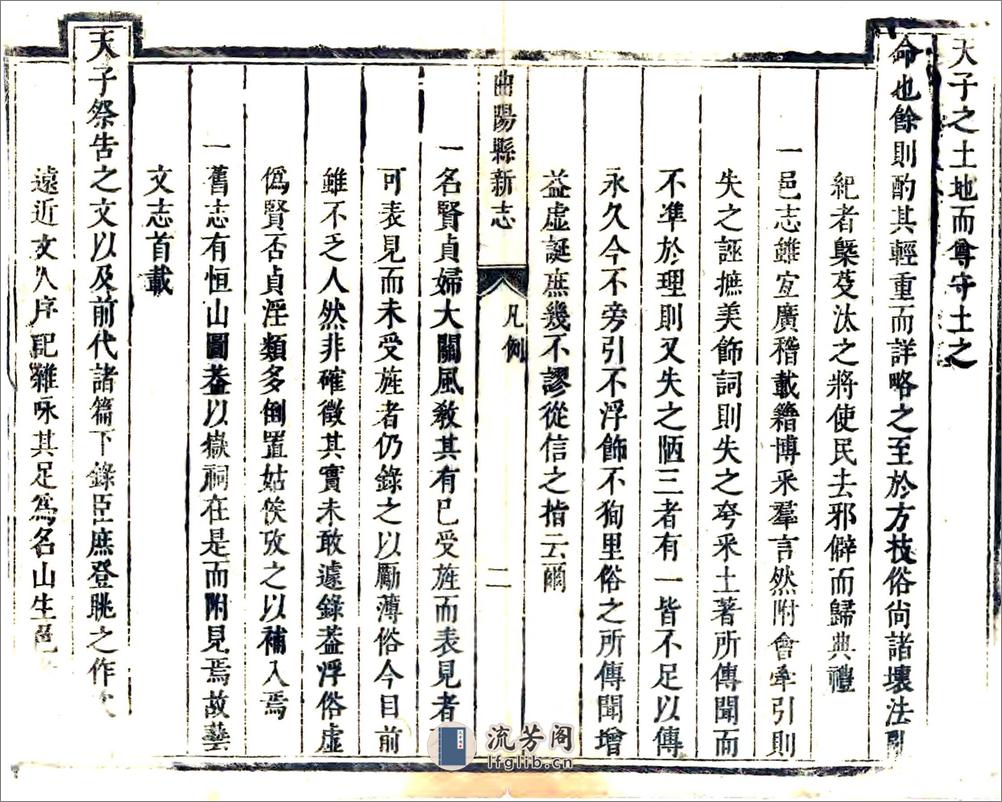 天子之土地而尊守土之
命也餘則酌其輕重而詳略之至於方技俗尚諸壞法亂
紀者槩芟汰之將使民去邪僻而歸典禮
一邑志雖宜廣稽載籍博采羣言然附會牽引則
失之誣摭美飾詞則失之夸采土著所傳聞而
不準於理則又失之陋三者有一皆不足以傳
永久今不旁引不浮飾不狥里俗之所傳聞增
益虛誕庶幾不謬從信之指云爾
曲陽縣新志
凡例
二
一名賢貞婦大關風敎其有已受旌而表見者
可表見而未受旌者仍錄之以勵薄俗今目前
雖不乏人然非確徵其實未敢遽錄葢浮俗虛
僞賢否貞淫類多倒置姑俟攷之以補入焉
一舊志有恒山圖葢以嶽祠在是而附見焉故藝
文志首載
天子祭告之文以及前代諸篇下錄臣庶登眺之作
遠近文人序記雜咏其足爲名山生色
流芳阁
lfglib.cn